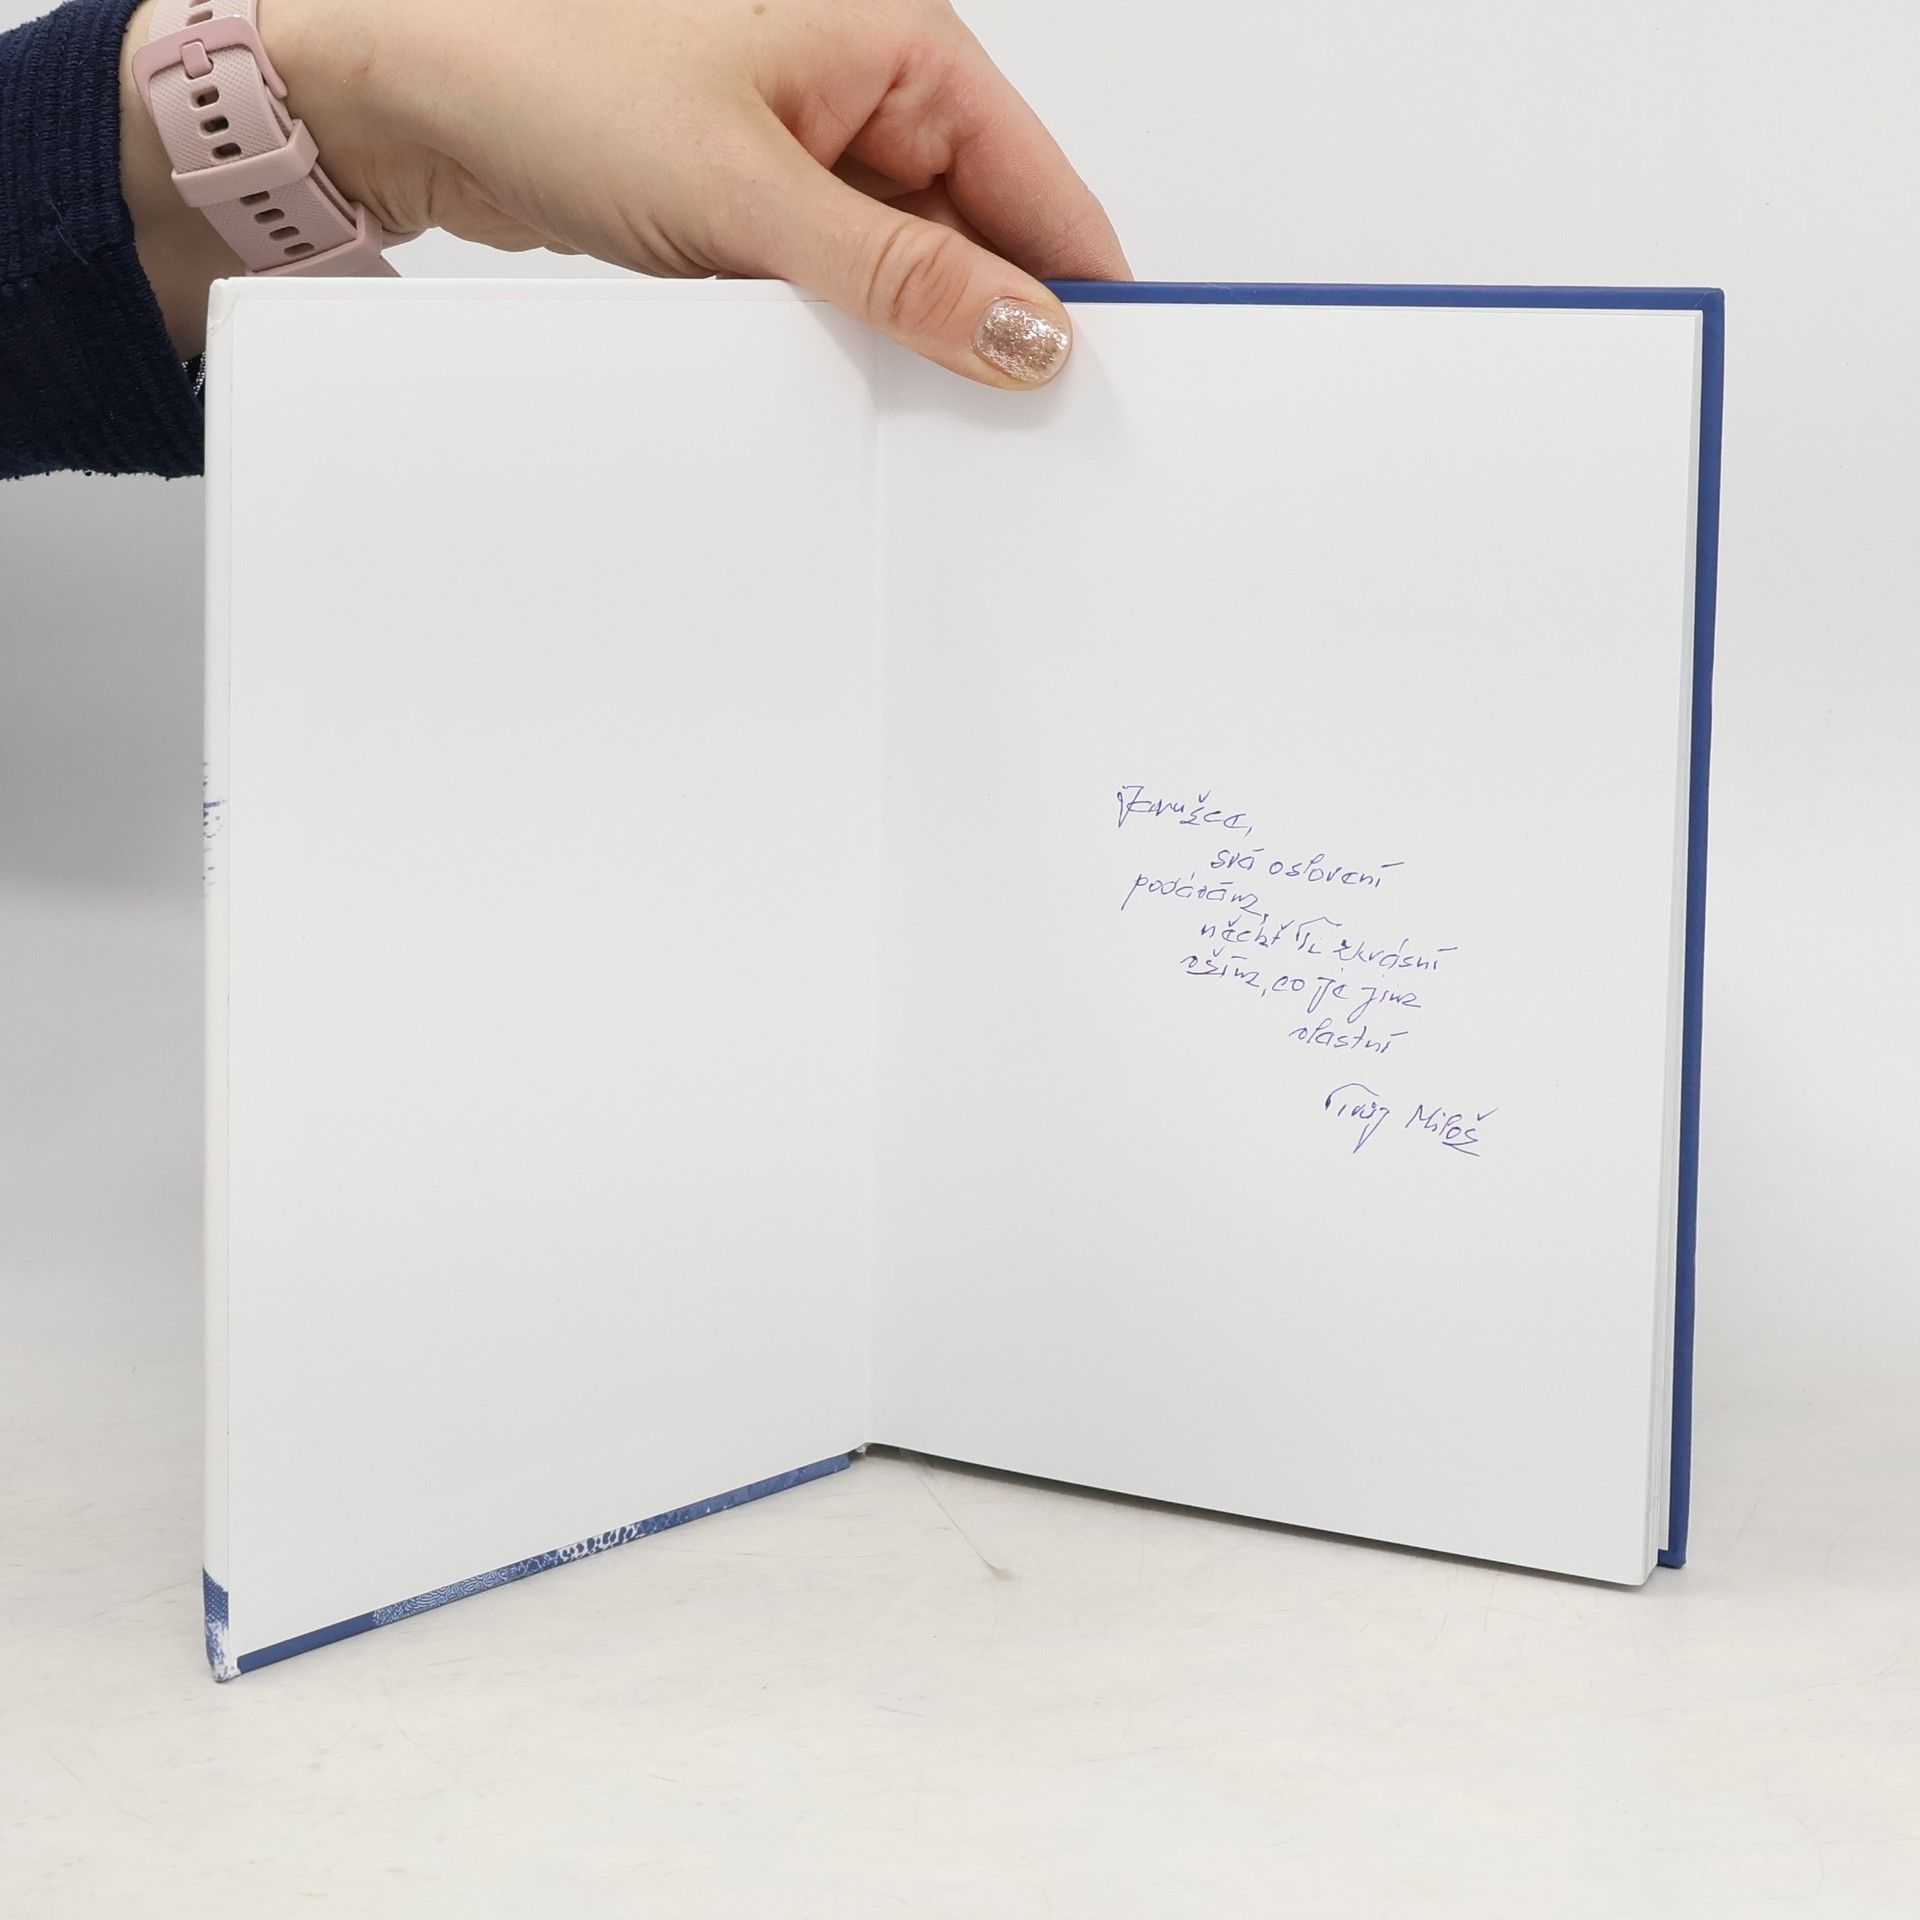 Jarušce,
svá oslovení
podávám,
nechť Ti zkrásní
vším, co je jim
vlastní
Tvůj Miloš